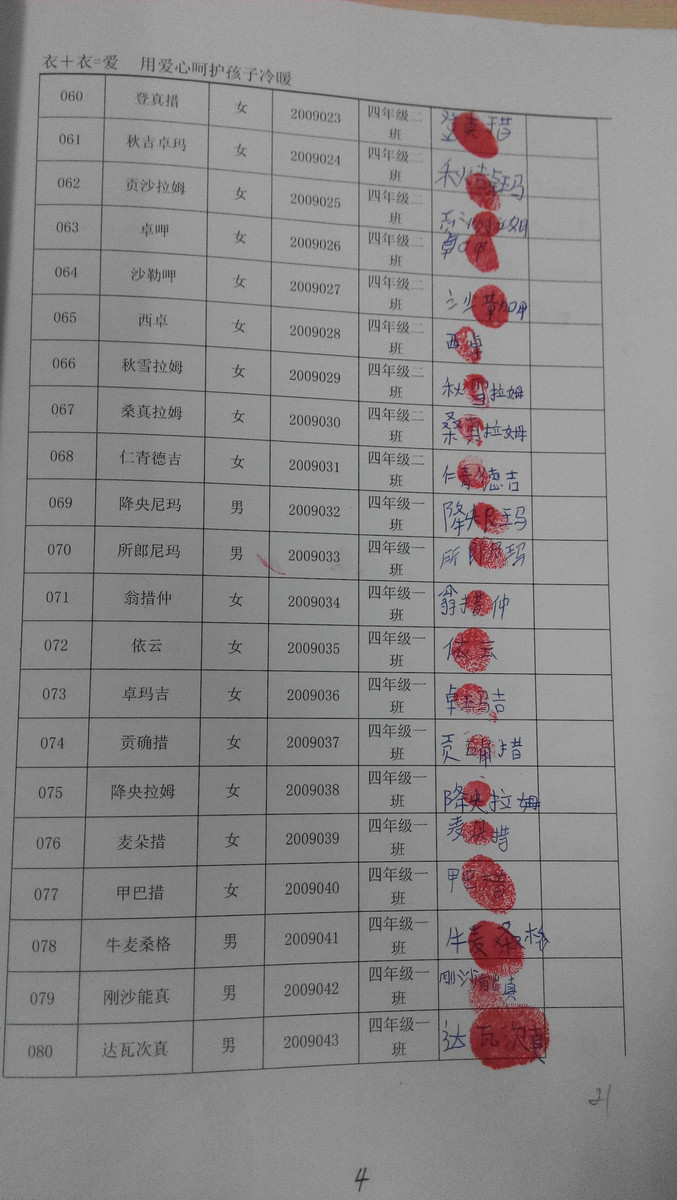 衣+衣=爱 用爱心呵护孩子冷暖
060 登真措 女 2009023 四年级二班 登真措
061 秋吉卓玛 女 2009024 四年级二班 秋吉卓玛
062 贡沙拉姆 女 2009025 四年级二班 贡沙拉姆
063 卓呷 女 2009026 四年级二班 卓呷
064 沙勒呷 女 2009027 四年级二班
065 西卓 女 2009028 四年级二班 西卓
066 秋雪拉姆 女 2009029 四年级二班 秋雪拉姆
067 桑真拉姆 女 2009030 四年级二班 桑真拉姆
068 仁青德吉 女 2009031 四年级二班 仁青德吉
069 降央尼玛 男 2009032 四年级一班 降央尼玛
070 所郎尼玛 男 2009033 四年级一班 所郎尼玛
071 翁措仲 女 2009034 四年级一班 翁措仲
072 依云 女 2009035 四年级一班 依云
073 卓玛吉 女 2009036 四年级一班 卓玛吉
074 贡确措 女 2009037 四年级一班 贡确措
075 降央拉姆 女 2009038 四年级一班 降央拉姆
076 麦朵措 女 2009039 四年级一班 麦朵措
077 甲巴措 女 2009040 四年级一班 甲巴措
078 牛麦桑格 男 2009041 四年级一班 牛麦桑格
079 刚沙能真 男 2009042 四年级一班 刚沙能真
080 达瓦次真 男 2009043 四年级一班 达瓦次真
21
4